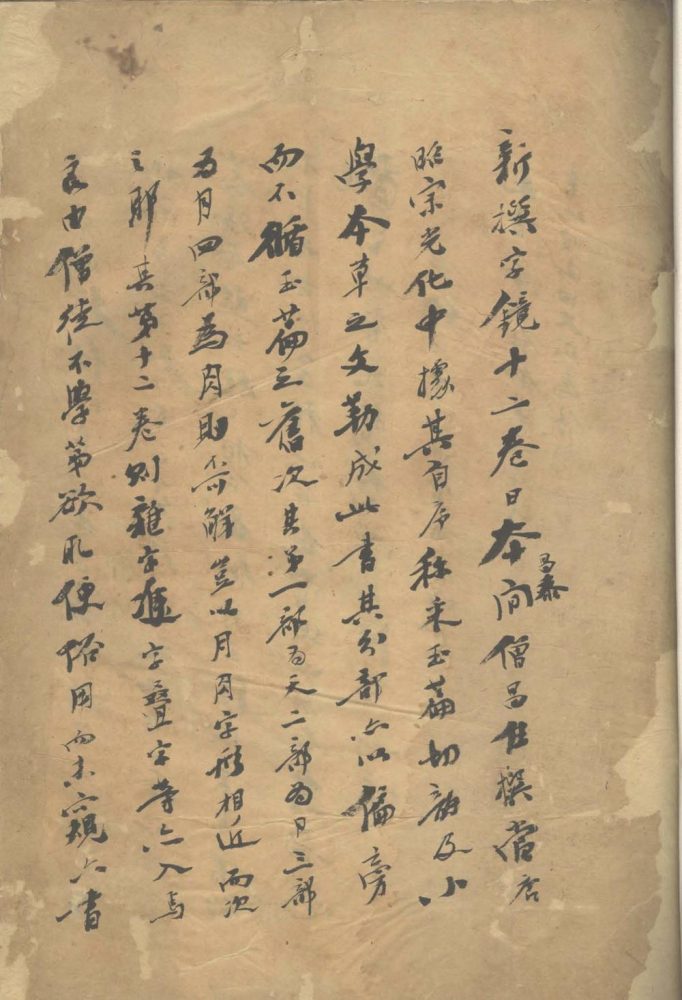 新撰字鏡十二卷日本昌泰間僧昌住撰當唐
昭宗光化中據其自序稱采玉篇切韻及小
學本草之文勒成此書其分部亦以偏旁
而不循玉篇之舊次其第一部為天二部為日三部
為月四部為肉則不可解豈以月肉字形相近而次
之耶其第十二卷則雜字重字疊字等亦入焉
良由僧徒不學第欲取便俗用而未窺六書